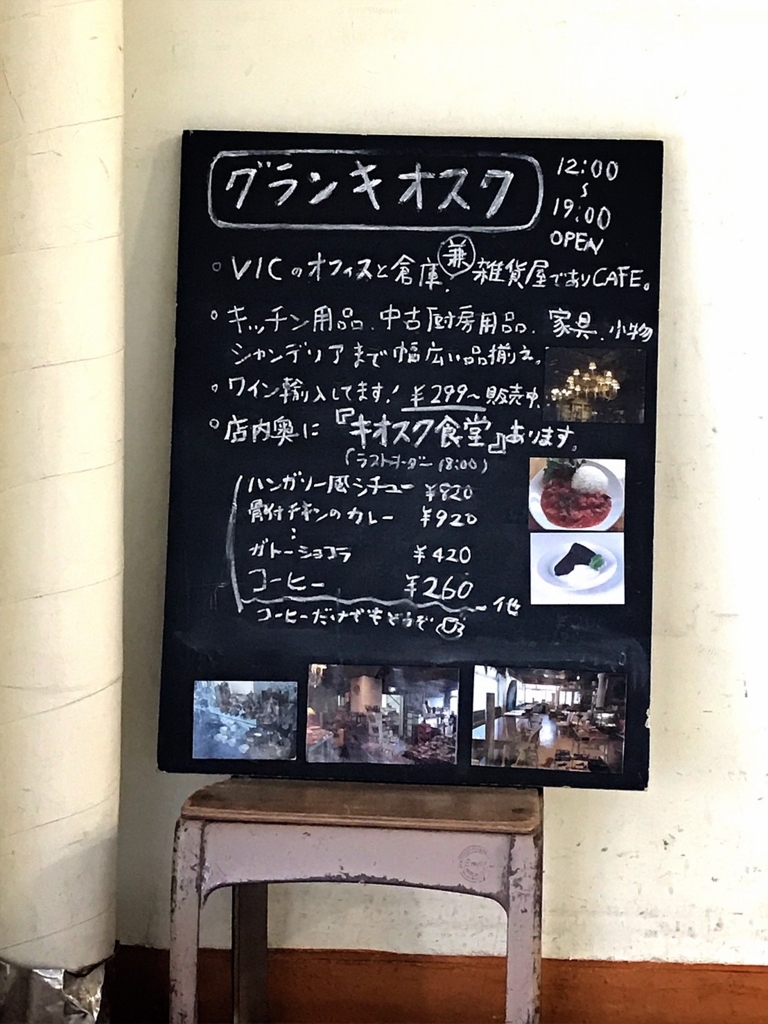 グランキオスク
12:00
〜
19:00
OPEN
。VICのオフィスと倉庫.兼雑貨屋でありCAFE。
。キッチン用品.中古厨房用品.家具.小物
シャンデリアまで幅広い品揃え。
。ワイン輸入してます!¥299〜販売中.
。店内奥に『キオスク食堂』あります。
(ラストオーダー 18:00)
ハンガリー風シチュー ¥820
骨付チキンのカレー ¥920
:
ガトーショコラ ¥420
コーヒー ¥260
他
コーヒーだけでもどうぞ